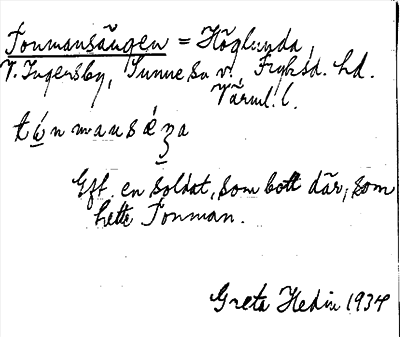 Tonmansängen = Höglunda,
V. Ingersby, Sunne sn v., Fryksd. hd.
Värml. l.
tónmansǽŋa
Eft. en soldat, som bott där, som
hette Tonman.
Greta Hedin 1934